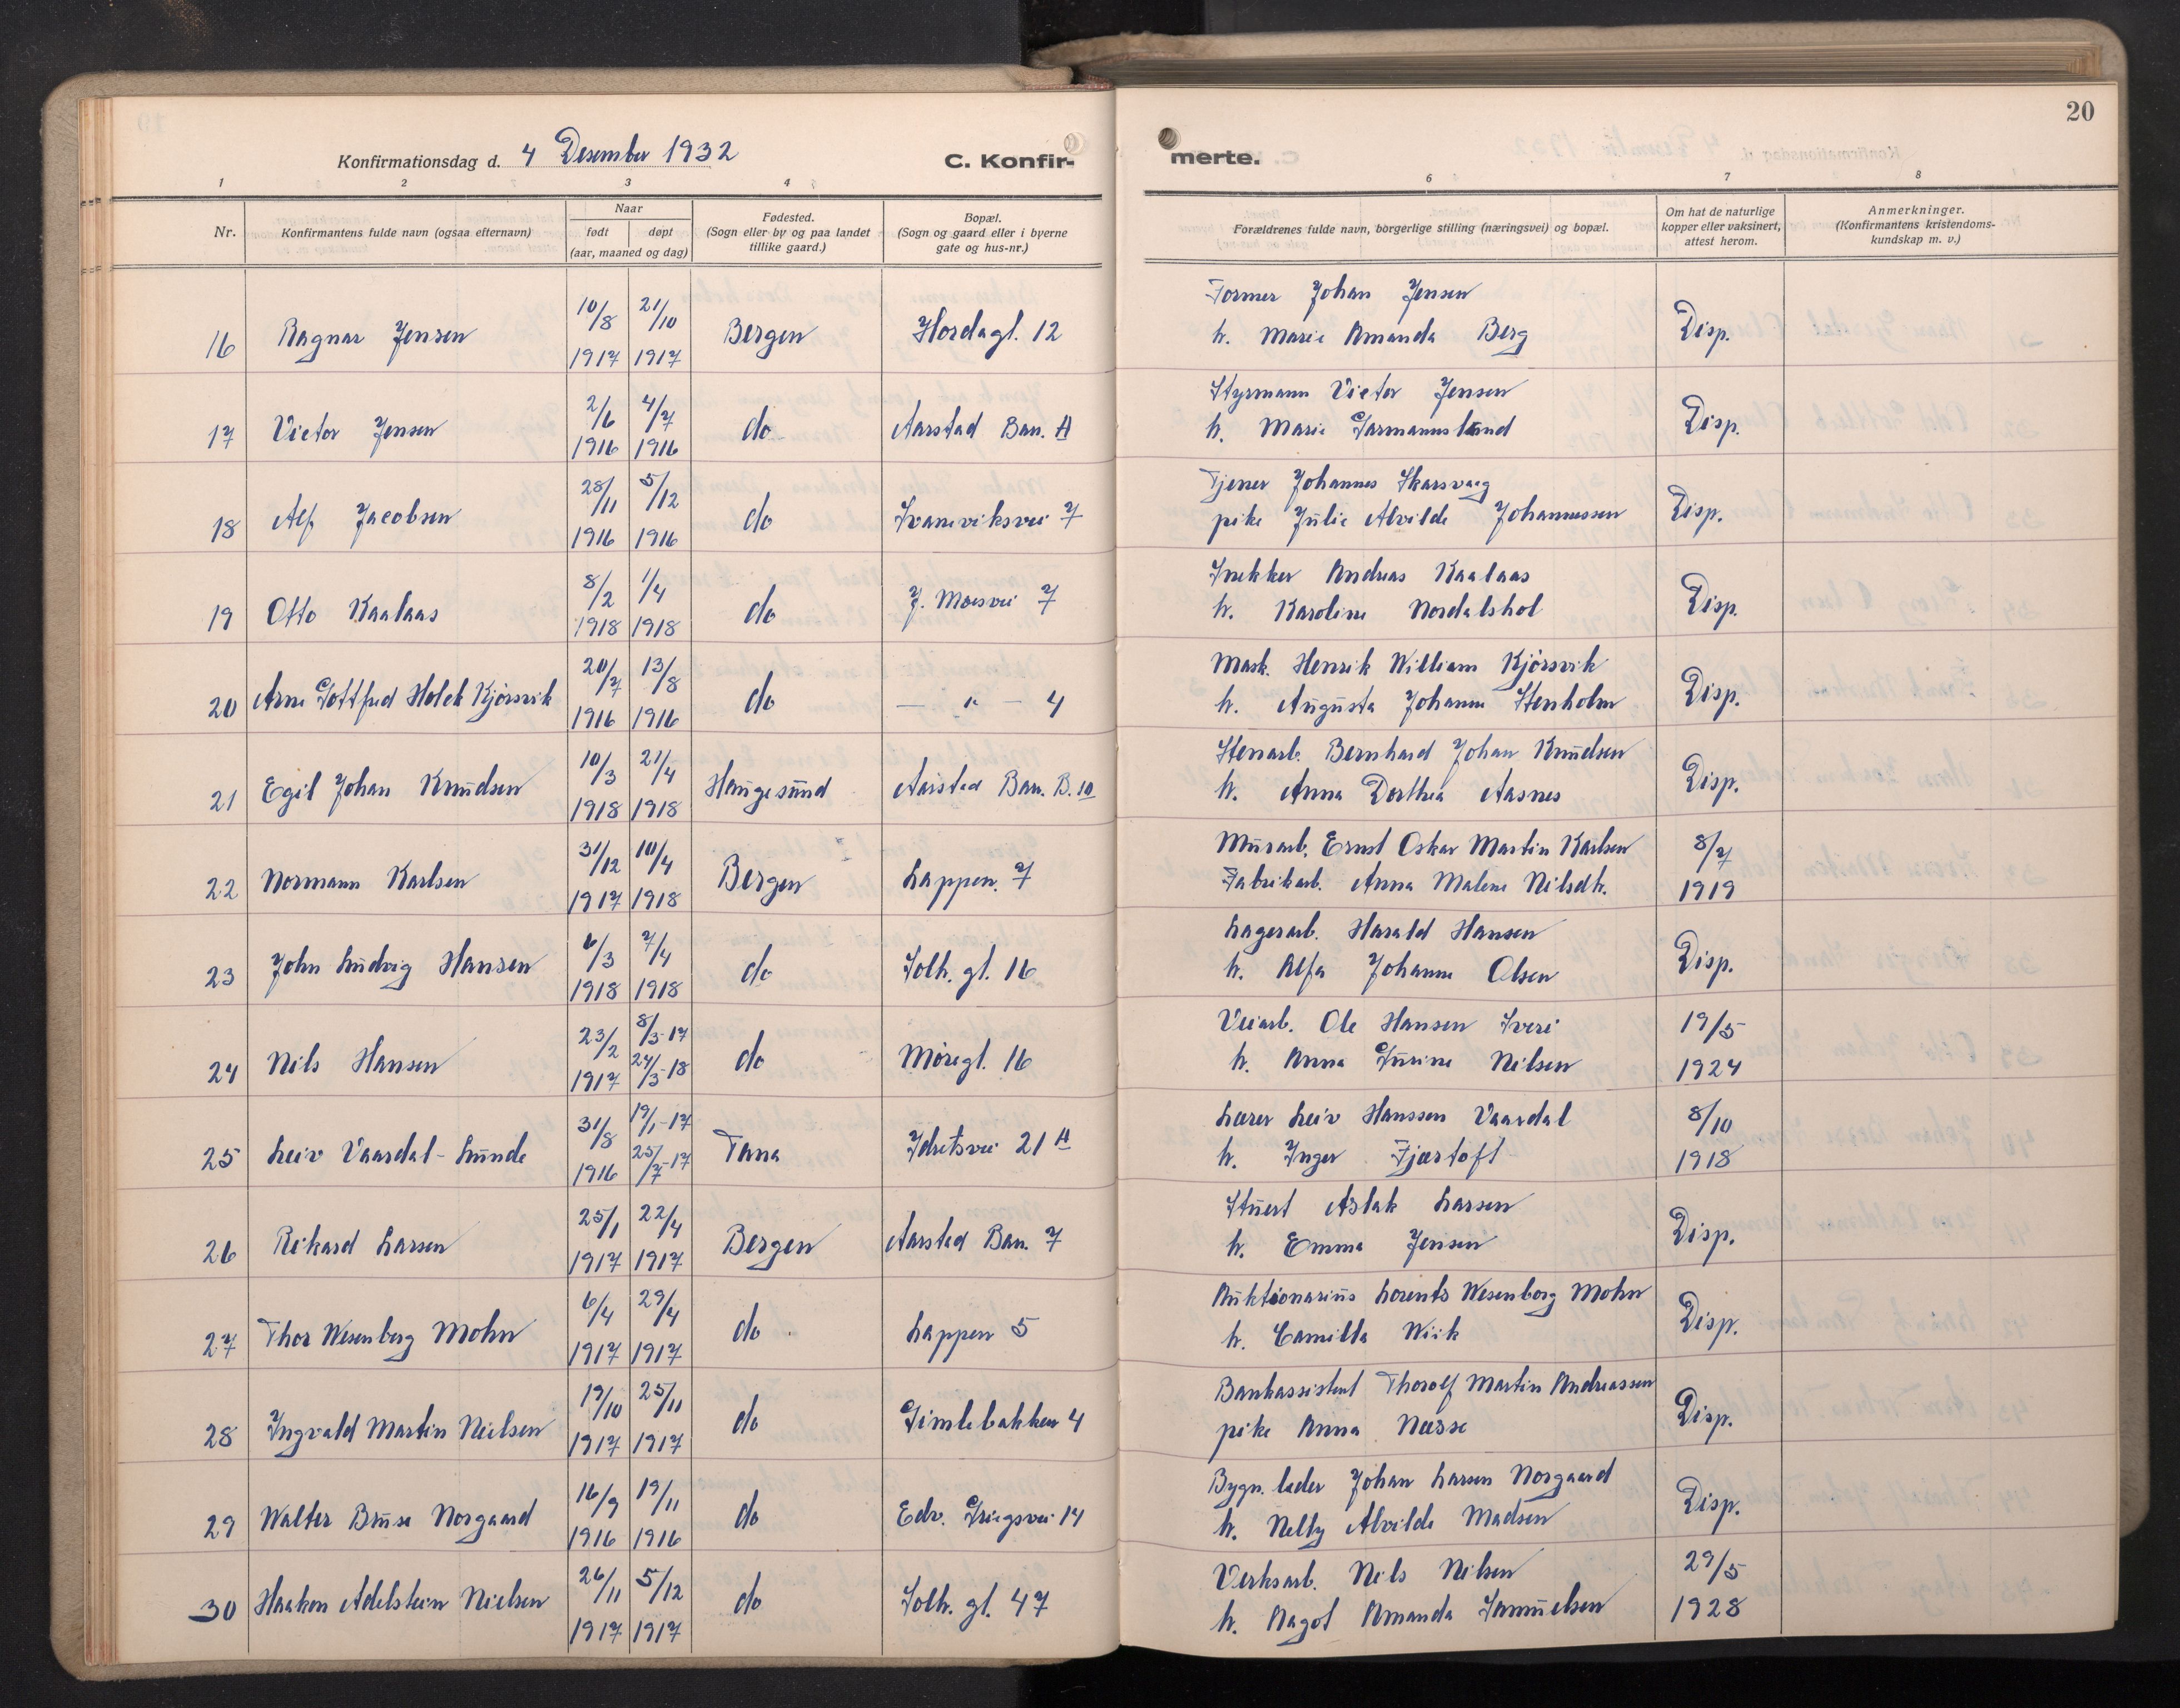 20
Konfirmationsdag d. 4 Desember 1932
C. Konfir-
merte.
1 2 3 4 6 7 8
Nr.
Konfirmantens fulde navn (ogsaa efternavn)
Naar
født døpt
(aar, maaned og dag)
Fødested.
(Sogn eller by og paa landet
tillike gaard.)
Bopæl.
(Sogn og gaard eller i byerne
gate og hus-nr.)
Forældrenes fulde navn, borgerlige stilling (næringsvei) og bopæl.
Om hat de naturlige
kopper eller vaksinert,
attest herom.
Anmerkninger.
(Konfirmantens kristendoms-
kundskap m. v.)
10/8 21/10 Former Johan Jensen
16 Ragnar Jensen Bergen Hordagt. 12 h. Marie Amanda Berg Disp.
1917 1917
2/6 4/7 Styrmann Victor Jensen
17 Victor Jensen do Aarstad Bar. A h. Marie Garmannslund Disp.
1916 1916
28/11 5/12 Tjener Johannes Skarsvaag
18 Alf Jacobsen do Svaneviksvei 7 pike Julie Alvilde Johannessen Disp.
1916 1916
8/2 1/4 Snekker Andreas Kaalaas
19 Otto Kaalaas do J. Moesvei 7 h. Karoline Nordalshol Disp.
1918 1918
20/7 13/8 Mask. Henrik William Kjørsvik
20 Arne Gottfred Holck Kjørsvik do — " — 4 h. Augusta Johanne Stenholm Disp.
1916 1916
10/3 21/4 Stenarb. Bernhard Johan Knudsen
21 Egil Johan Knudsen Haugesund Aarstad Bar. B. 10 h. Anna Dorthea Aasnes Disp.
1918 1918
31/12 10/4 Murarb. Ernst Oskar Martin Karlsen 8/7
22 Normann Karlsen Bergen Lappen. 7 Fabrikarb. Anna Malene Nilsdtr. 1919
1917 1918
6/3 7/4 Lagerarb. Harald Hansen
23 John Ludvig Hansen do Solh. gt. 16 h. Alfa Johanne Olsen Disp.
1918 1918
23/2 8/3-17 Veiarb. Ole Hansen Sveri 19/5
24 Nils Hansen do Møregt. 16 h. Anna Gurine Nilsen 1924
1917 24/3-18
31/8 19/1-17 Lærer Leiv Hanssen Vaardal 8/10
25 Leiv Vaardal-Lunde Tana Idretsvei 21 A h. Inger Fjærtoft 1918
1916 25/7-17
25/1 22/4 Stuert Aslak Larsen
26 Rikard Larsen Bergen Aarstad Bar. 7 h. Emma Jensen Disp.
1917 1917
6/4 29/4 Auktionarius Lorents Wesenberg Mohn
27 Thor Wesenberg Mohn do Lappen 5 h. Camilla Wiik Disp.
1917 1917
19/10 25/11 Bankassistent Thorolf Martin Andreassen
28 Ingvald Martin Neilsen do Gimlebakken 4 pike Anna Næsse Disp.
1917 1917
16/9 19/11 Bygn. leder Johan Larsen Norgaard
29 Walter Bruse Norgaard do Edv. Griegsvei 14 h. Nelly Alvilde Madsen Disp.
1916 1916
26/11 5/12 Verksarb. Nils Nilsen 29/5
30 Haakon Adelstein Nielsen do Solh. gt. 47 h. Aagot Amanda Samuelsen 1928
1917 1917